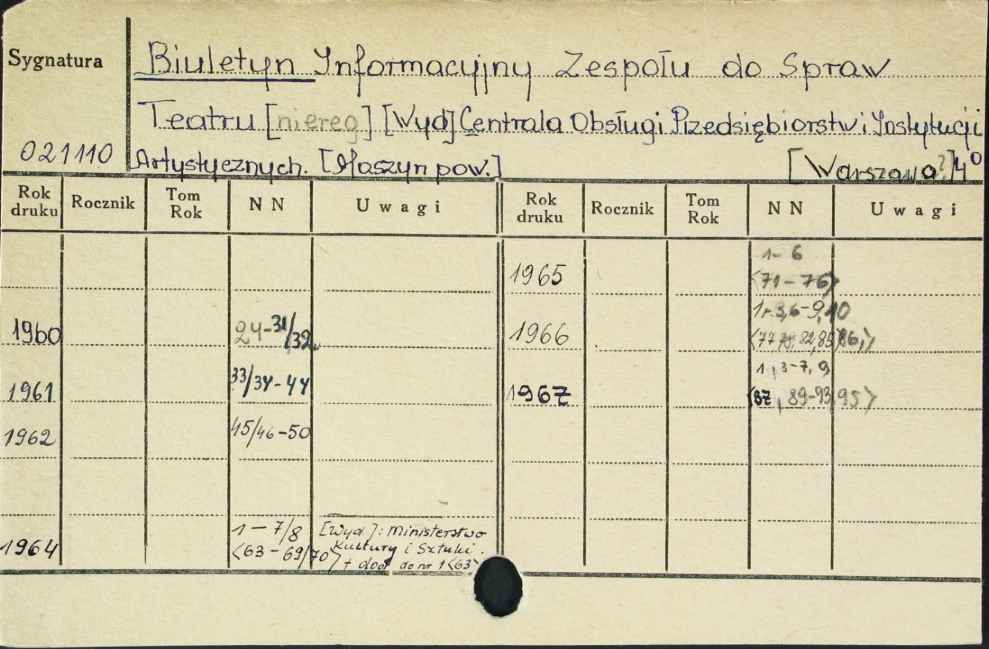 Sygnatura
Biuletyn Informacyjny Zespołu do Spraw
Teatru [niereg] [Wyd] Centrala Obsługi Przedsiębiorstw i Instytucji
021110 Artystycznych. [Maszyn pow.] [Warszawa?] 4°
Rok druku Rocznik Tom Rok NN Uwagi Rok druku Rocznik Tom Rok NN Uwagi
1965 1-6 <71-76>
1960 24-31/32 1966 3,6-9,10
1961 33/34-44 1967 1,3-7,9 <87, 89-93,95>
1962 45/46-50
1964 1-7/8 <63-69/70> [Wyd]: Ministerstwo
Kultury i Sztuki.
+ dod do nr 1<63>